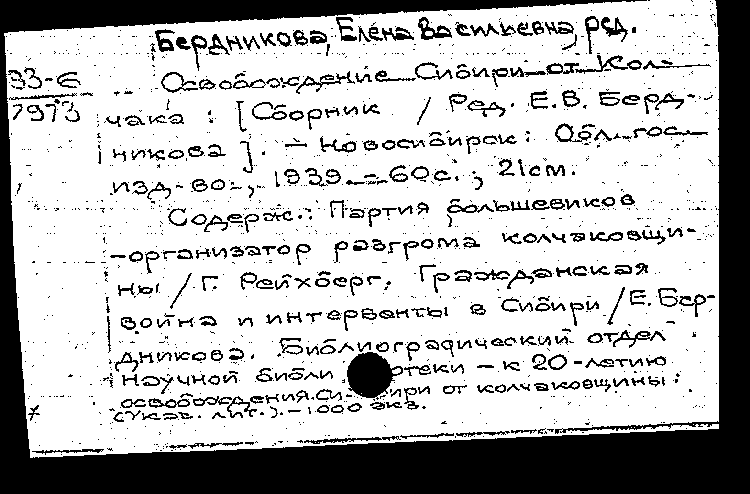 Бердникова, Елена Васильевна, ред.
93-6
7973
Освобождение Сибири от Кол-
чака : [Сборник / Ред. Е.В. Берд-
никова]. – Новосибирск: Обл. гос.
изд-во, 1939. – 60с.; 21см.
Содерж.: Партия большевиков
-организатор разгрома колчаковщи-
ны / Г. Рейхберг. Гражданская
война и интервенты в Сибири / Е. Бер-
дникова. Библиографический отдел
научной библи отеки – к 20-летию
освобождения Си- бири от колчаковщины:
(Указ. лит.). – 1000 экз.